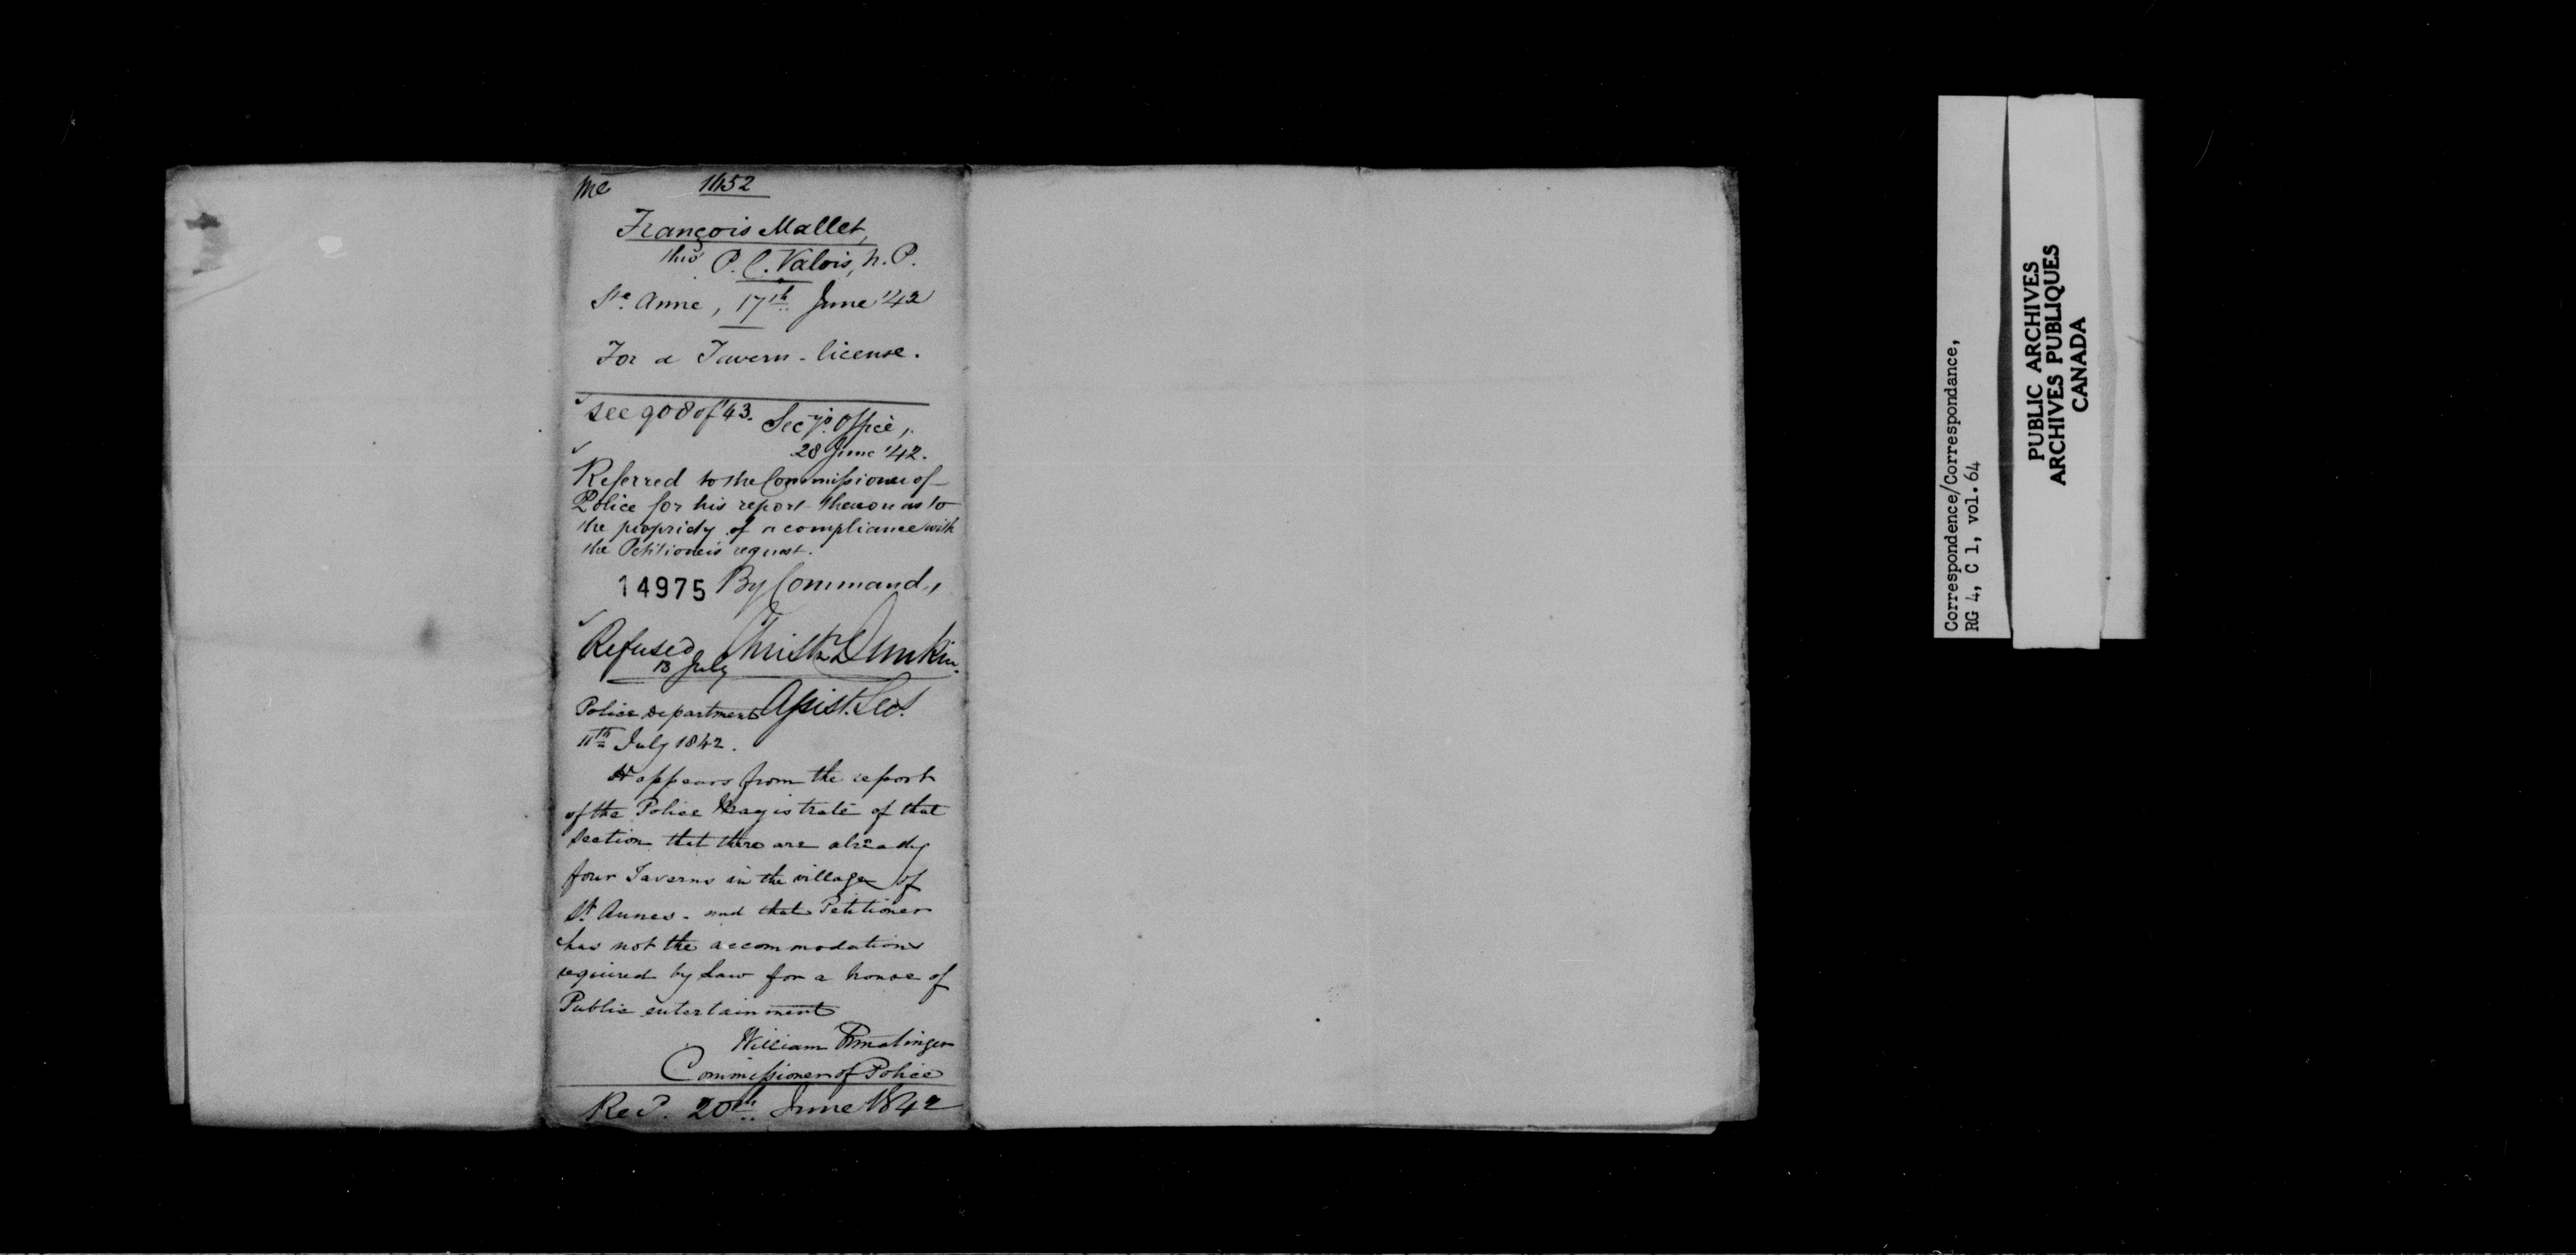 me 1452
François Mallet,
thro' P. C. Valois, N. P.
Ste. Anne, 17th June '42
For a Tavern-license.
see 908 of '43. Secy's Office,
28 June '42.
Referred to the Commissioner of
Police for his report thereon as to
the propriety of a compliance with
the Petitioner's request.
14975 By Command,
Refused Christr Dunkin.
13 July
Police Department Assist. Sec.
11th July 1842.
It appears from the report
of the Police Magistrate of that
section that there are already
four Taverns in the village of
St. Annes - and that Petitioner
has not the accommodations
required by Law for a house of
Public entertainment
William Ermatinger
Commissioner of Police
Recd. 20th June 1842
Correspondence/Correspondance,
RG 4, C 1, vol. 64
PUBLIC ARCHIVES
ARCHIVES PUBLIQUES
CANADA